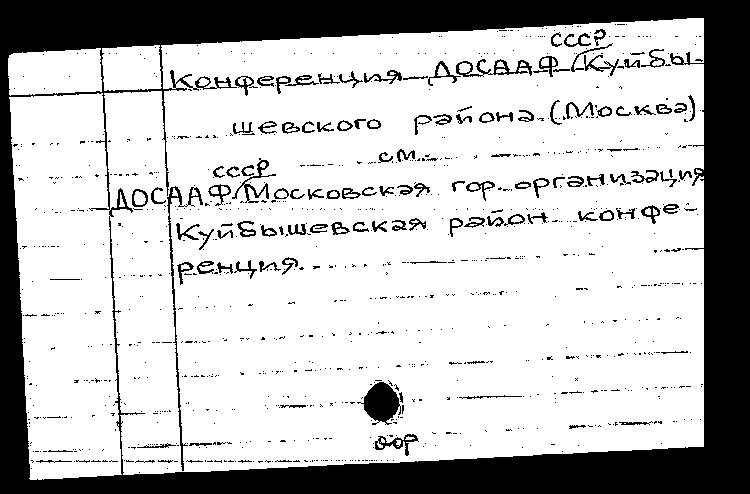 СССР
Конференция ДОСААФ/Куйбы-
шевского района (Москва)
см.
СССР
ДОСААФ/Московская гор. организация
Куйбышевская район. конфе-
ренция.